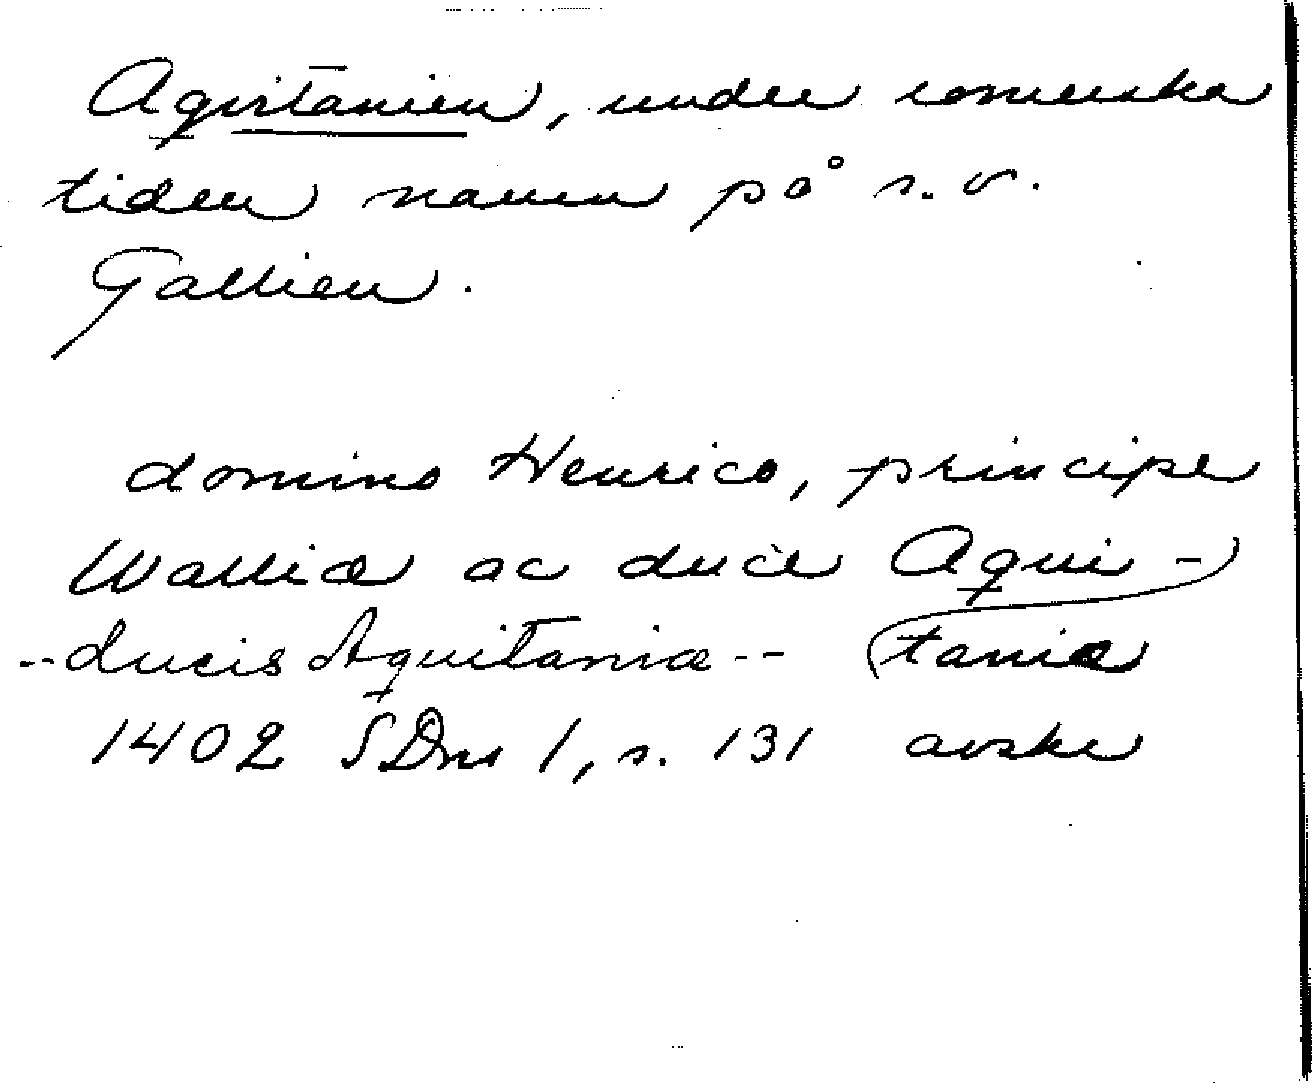 Aqvitanien, under romerska
tiden namn på s.v.
Gallien.
domino Henrico, principe
Walliæ ac duce Aqui-
taniæ
--ducis Aquitaniæ--
1402 SDns 1, s. 131 avskr